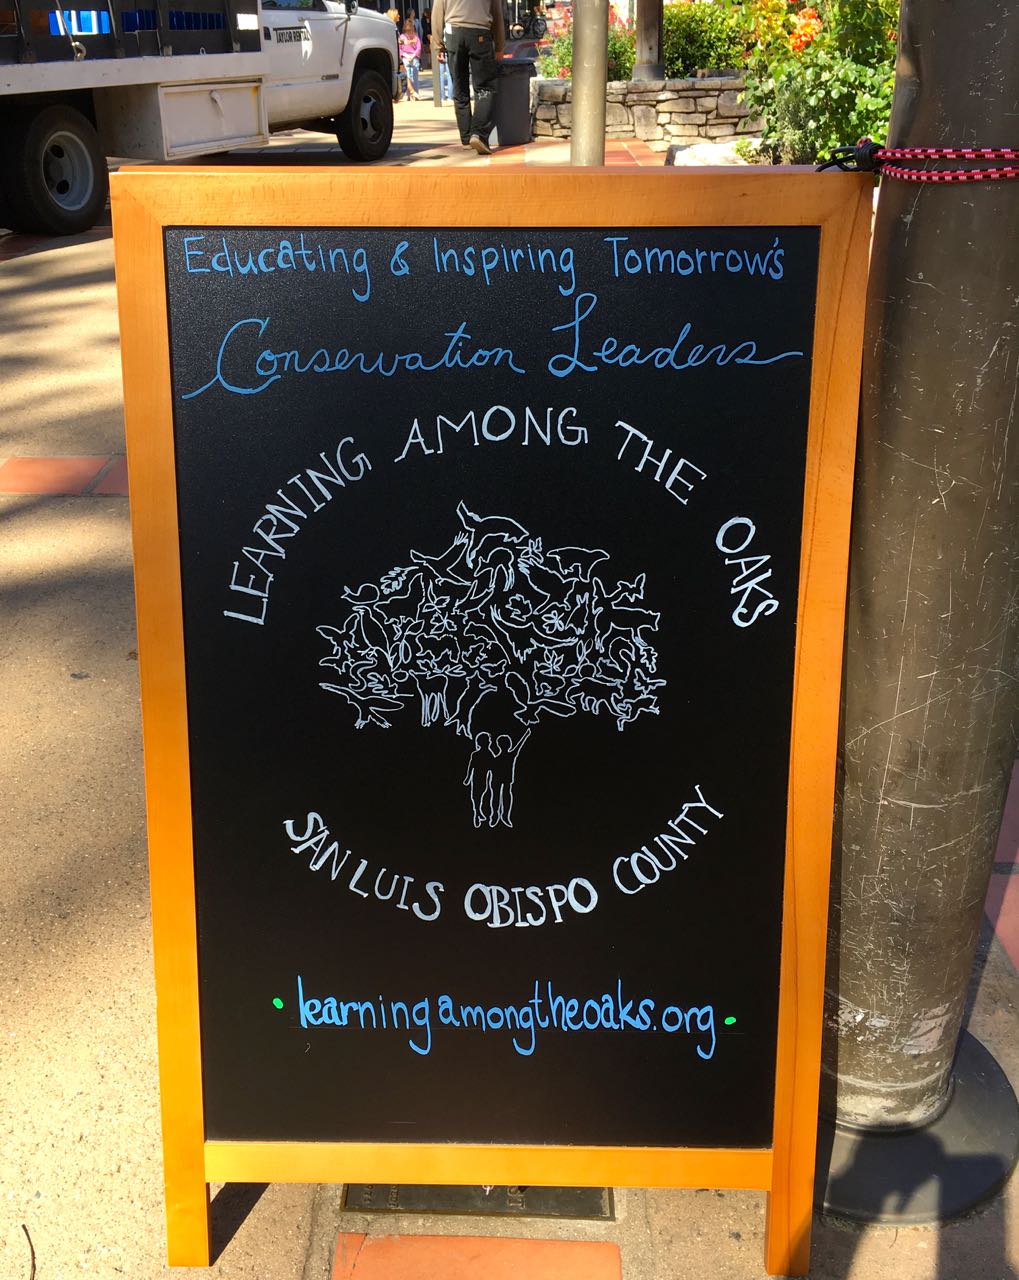 TAYLOR RENTAL
Educating & Inspiring Tomorrow's
Conservation Leaders
LEARNING AMONG THE OAKS
SAN LUIS OBISPO COUNTY
• learningamongtheoaks.org •